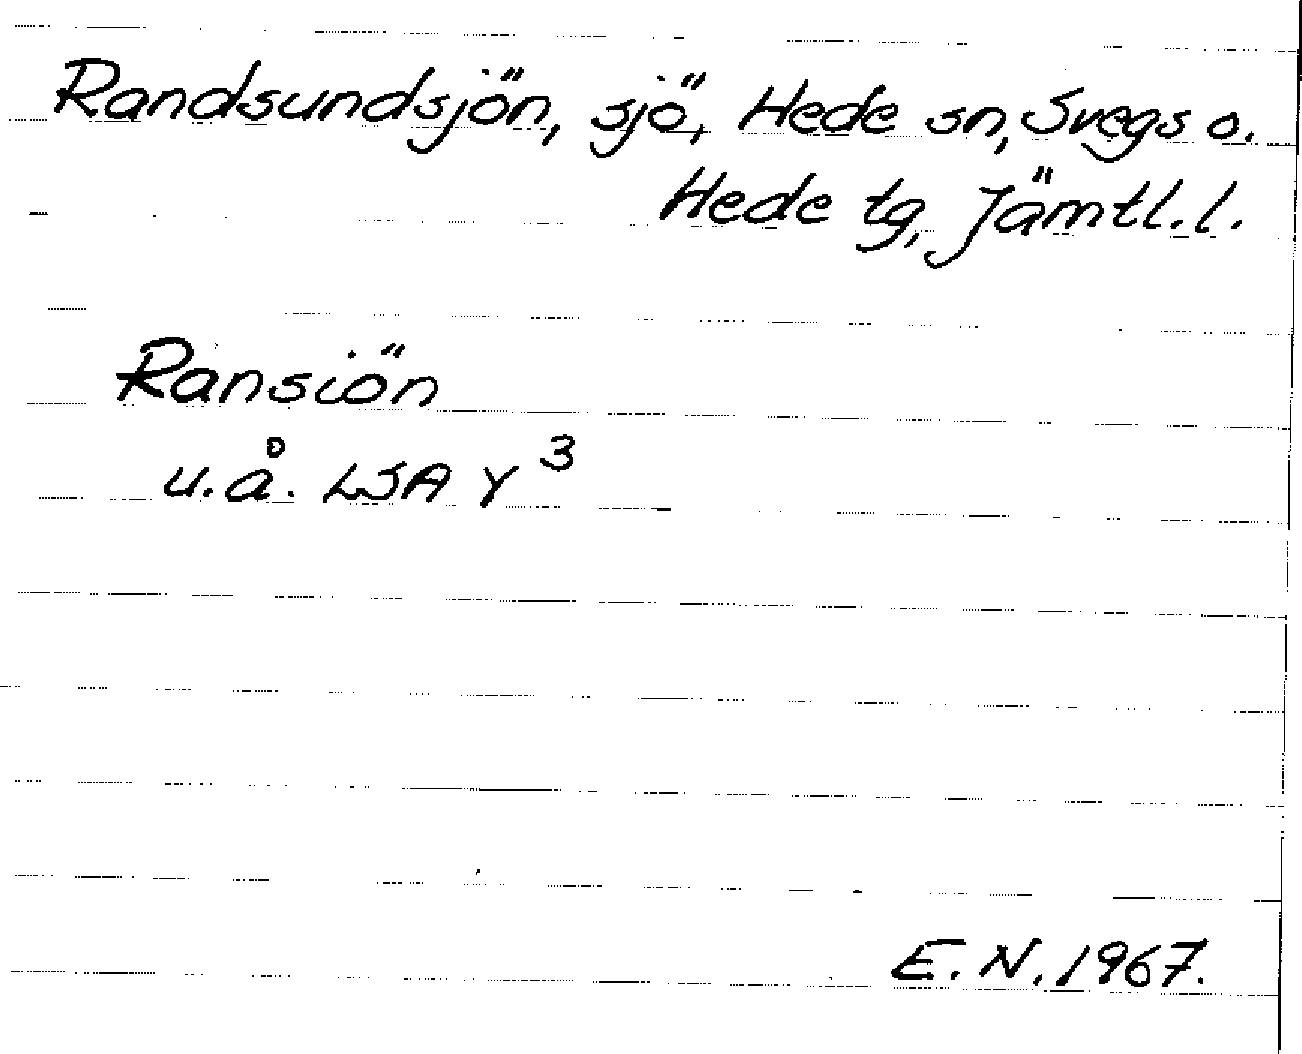 Randsundsjön, sjö, Hede sn, Svegs o.
Hede tg, Jämtl. l.
Ransiön
u.å. LSA Y 3
E. N. 1967.